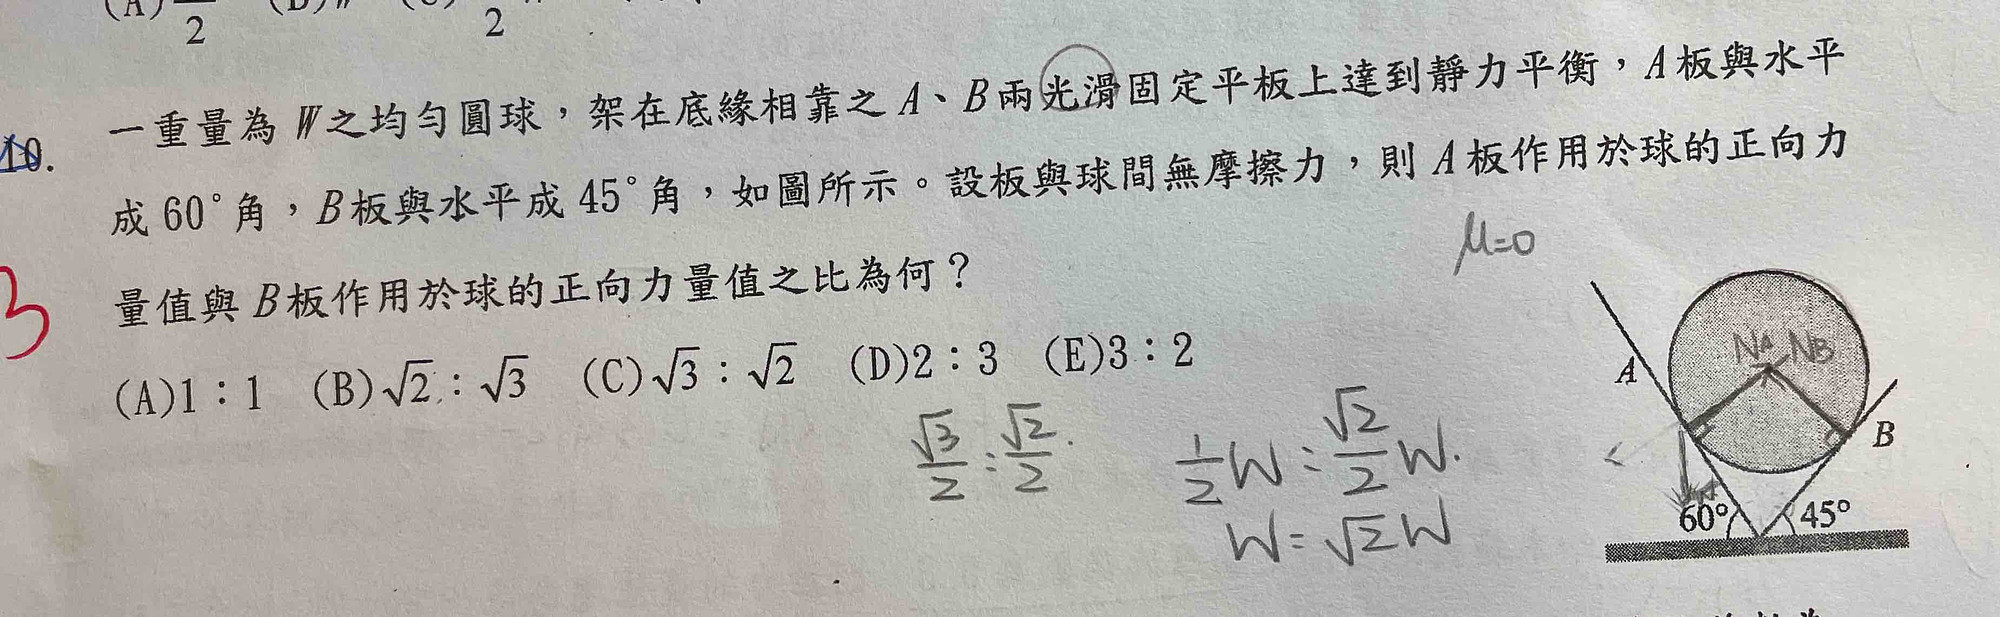 2
2
10.
一重量為 W之均勻圓球，架在底緣相靠之 A、B兩光滑固定平板上達到靜力平衡，A板與水平
成 60°角，B板與水平成 45°角，如圖所示。設板與球間無摩擦力，則 A板作用於球的正向力
μ=0
3
量值與 B板作用於球的正向力量值之比為何？
(A)1：1 (B)√2：√3 (C)√3：√2 (D)2：3 (E)3：2
√3/2 : √2/2.
1/2 W : √2/2 W.
W = √2 W
NA NB
A
B
60° 45°